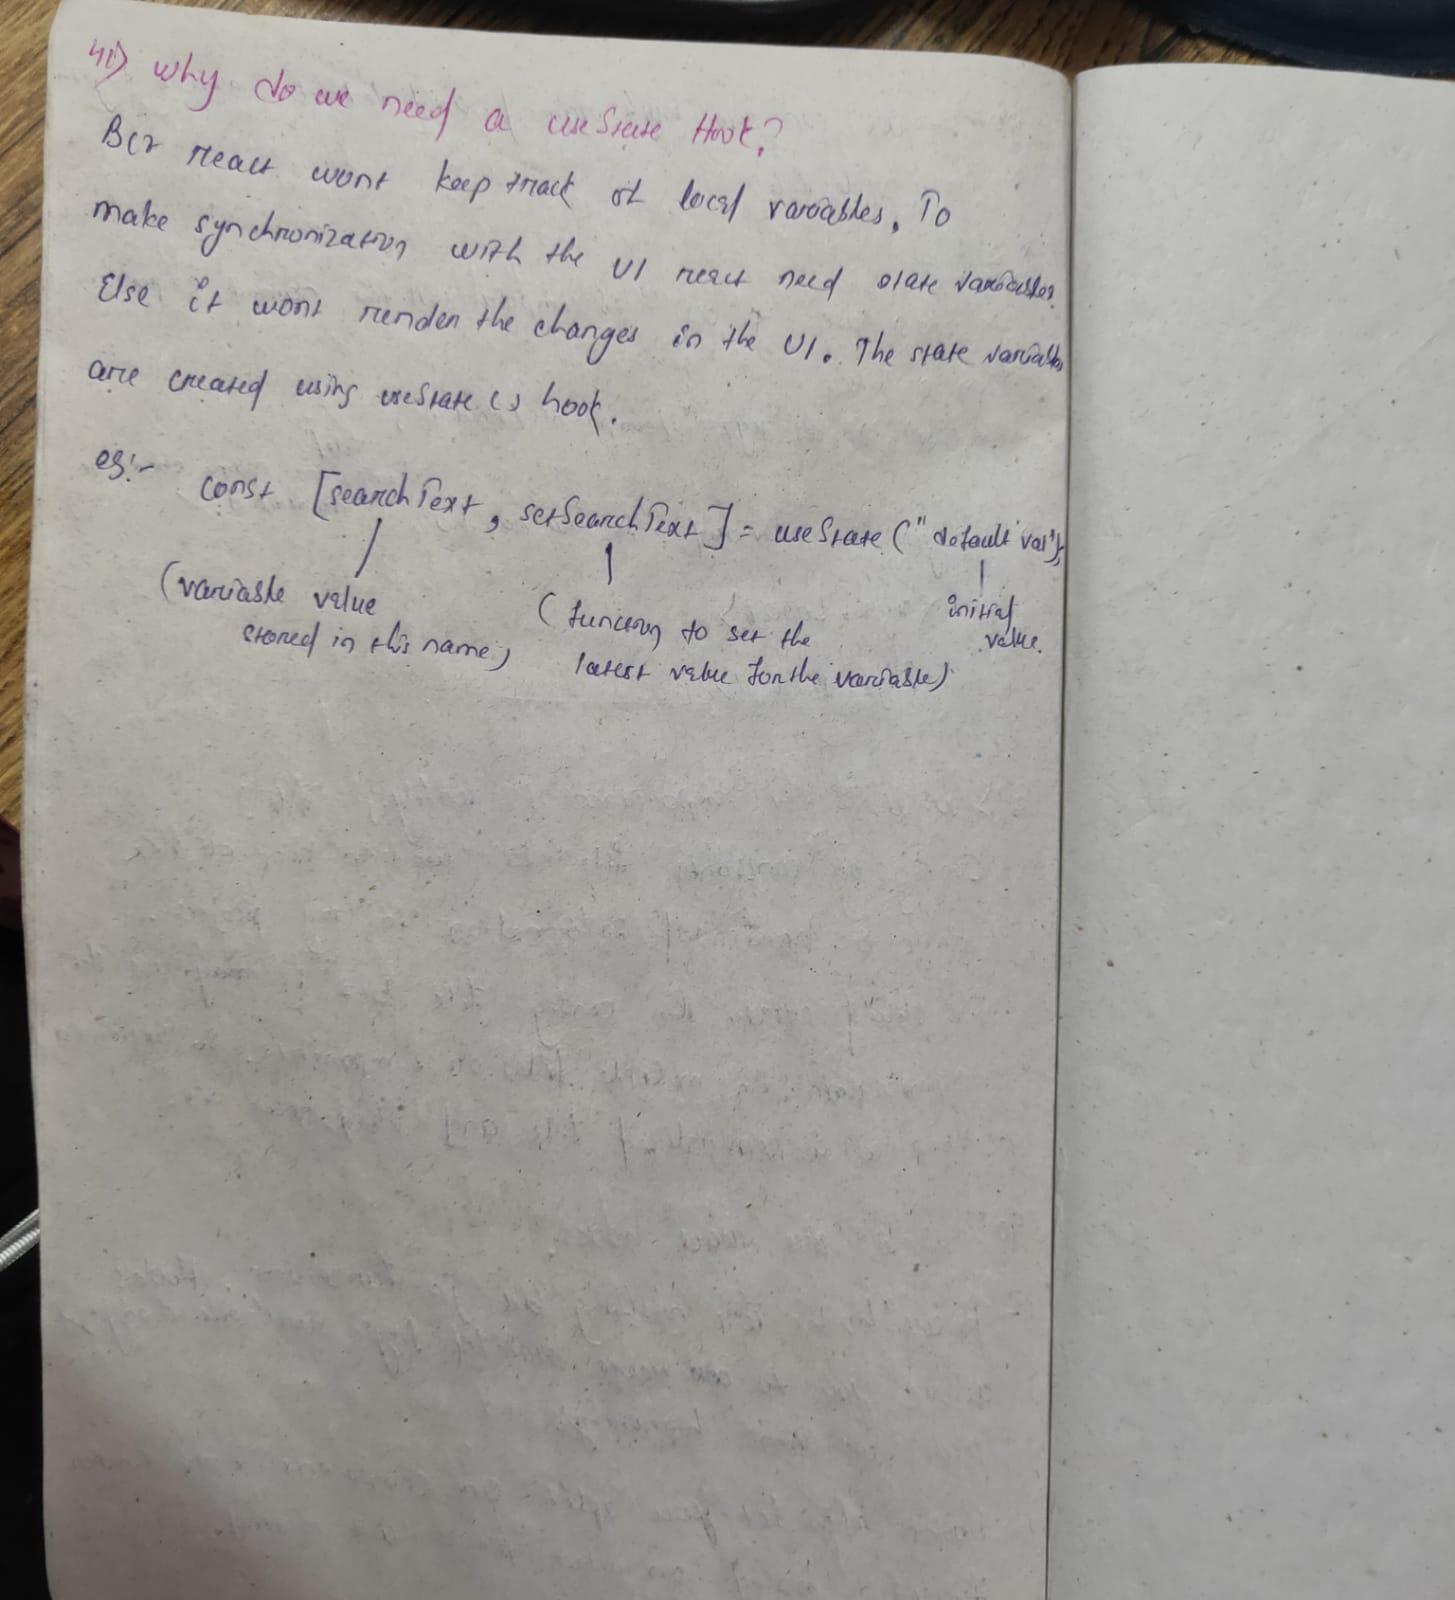 41) Why do we need a useState Hook?
Bcz react wont keep track of local variables. To
make synchronization with the UI react need state variables.
Else it wont render the changes in the UI. The state variables
are created using useState () hook.
eg:- const [searchText, setSearchText] = useState ("default val");
(variable value
stored in this name)
(function to set the
latest value for the variable)
initial
value.